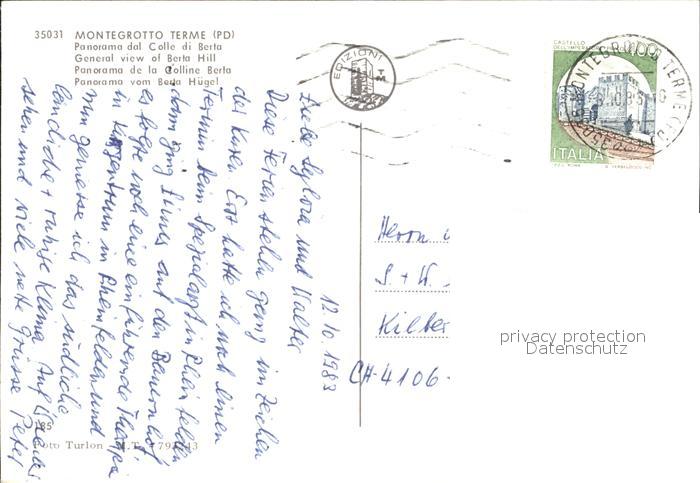 35031 MONTEGROTTO TERME (PD)
Panorama dal Colle di Berta
General view of Berta Hill
Panorama de la Colline Berta
Panorama vom Berta Hügel
EDIZIONI
TM
CASTELLO
ITALIA
MONTEGROTTO TERME
12.10.1983
Liebe Sylvia und Walter
Diese Ferien stehen ganz im Zeichen
der Kuren. Erst hatte ich noch einen
Termin beim Spezialarzt in Rheinfelden
dann ging Simes auf den Bauernhof,
es folgte noch eine einführende Therapie
in Kurzentrum in Rheinfelden und
nun geniesse ich das südliche
ländliche + ruhige Klima. Auf Wieder
sehen und viele nette Grüsse Peter
Herrn u
S. + W.
Kilber
CH-4106
privacy protection
Datenschutz
185
Foto Turlon